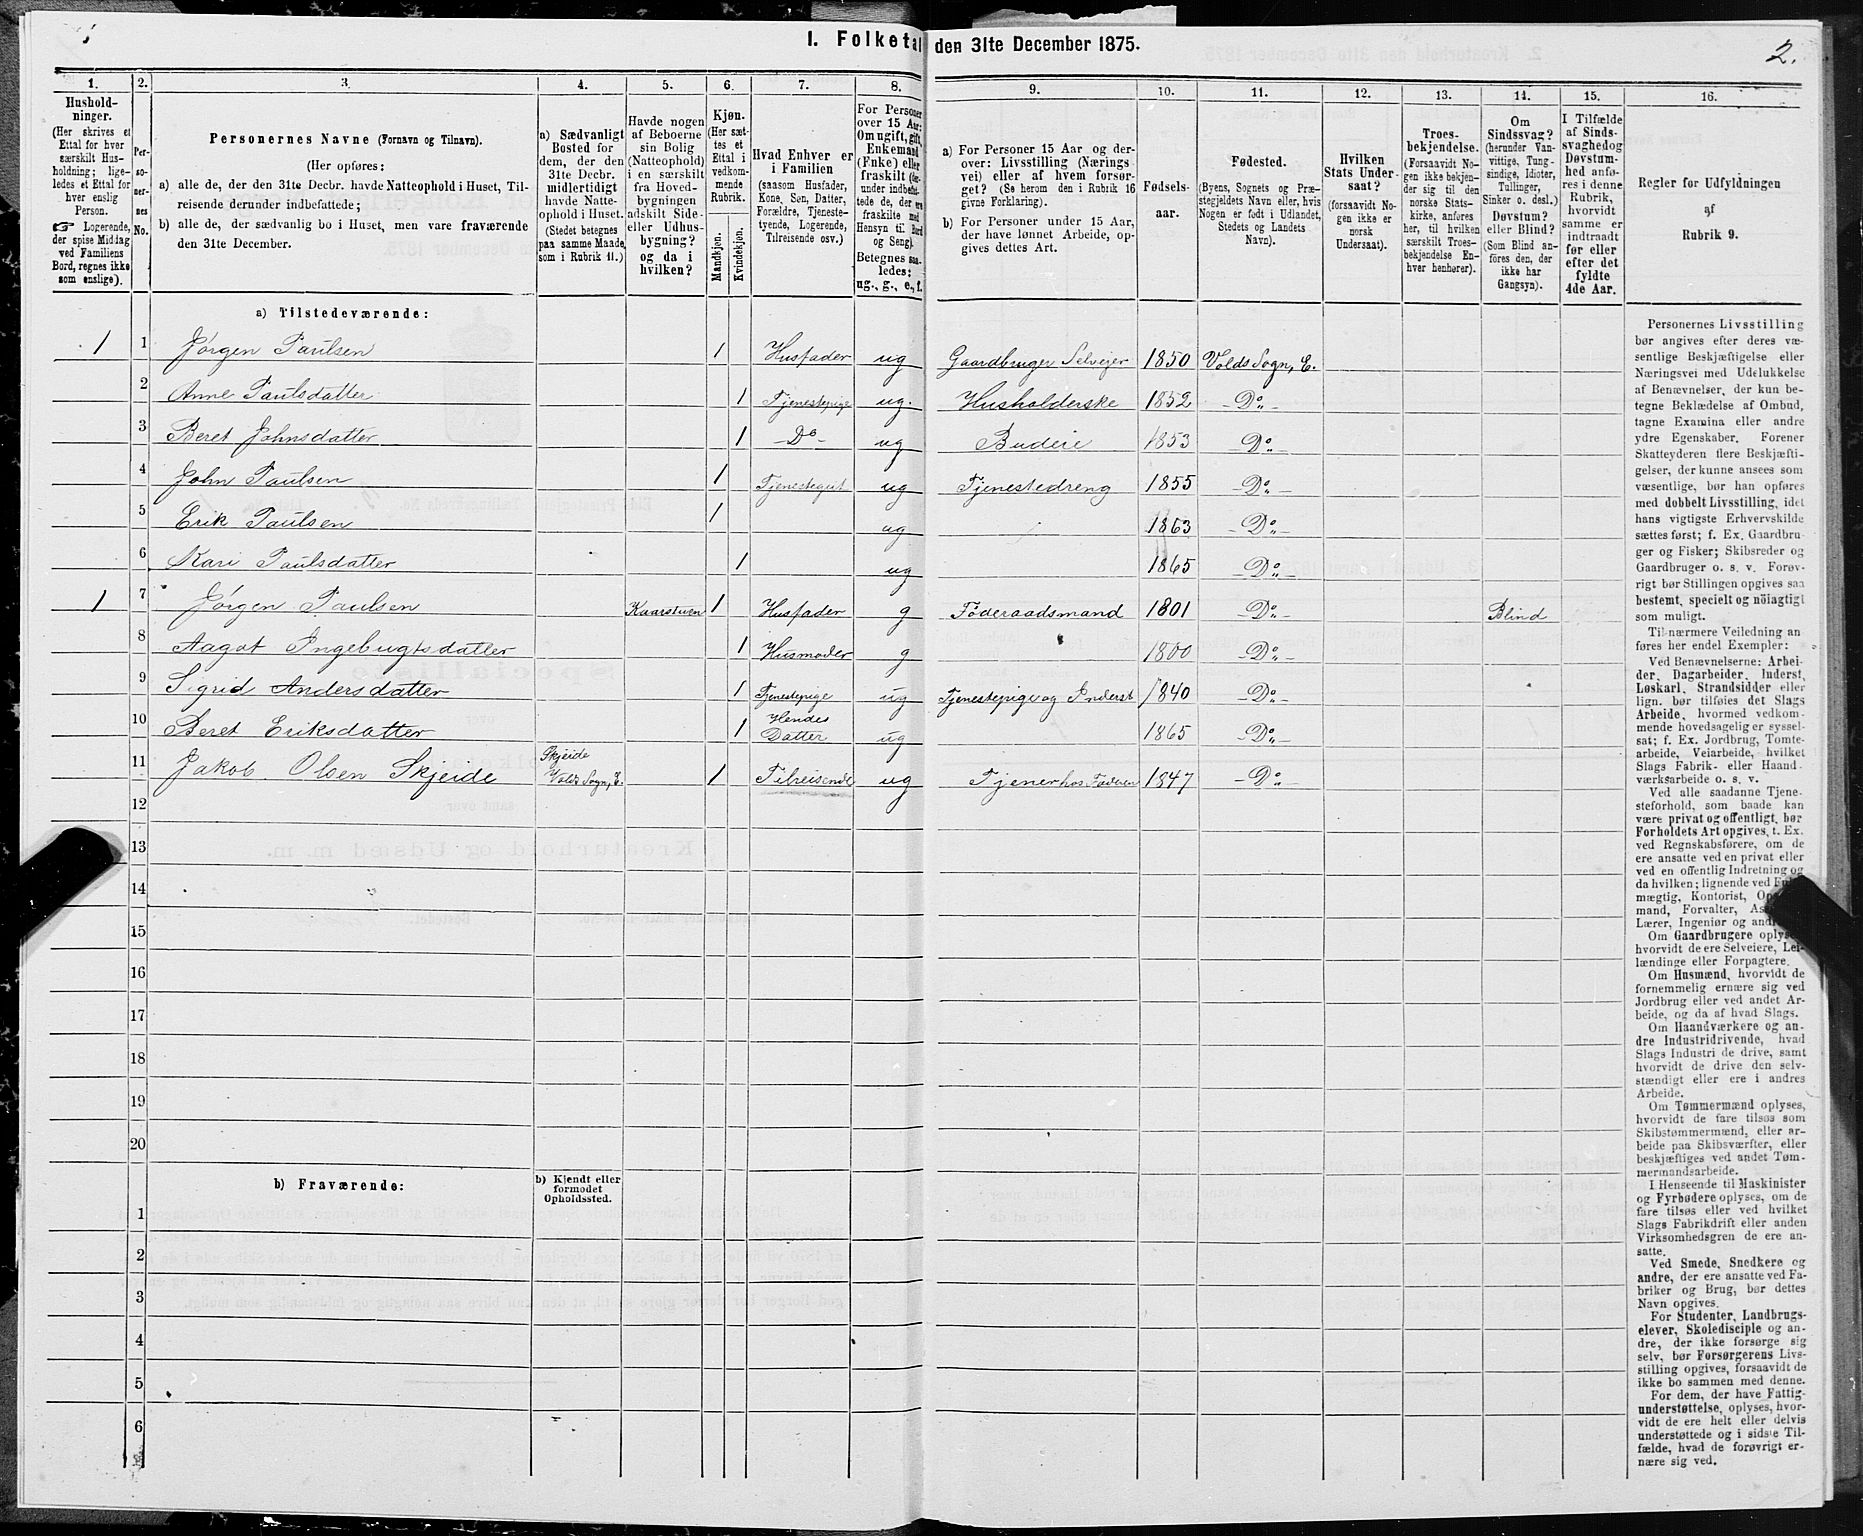 1
I. Folketal den 31te December 1875.
2.
1.
Hushold-
ninger.
(Her skrives et
Ettal for hver
særskilt Hus-
holdning; lige-
ledes et Ettal for
hver enslig
Person.
☞ Logerende,
der spise Middag
ved Familiens
Bord, regnes ikke
som enslige).
2.
Per-
so-
ner-
nes
No.
3.
Personernes Navne (Fornavn og Tilnavn).
(Her opføres:
a) alle de, der den 31te Decbr. havde Natteophold i Huset, Til-
reisende derunder indbefattede;
b) alle de, der sædvanlig bo i Huset, men vare fraværende
den 31te December.
4.
a) Sædvanligt
Bosted for
dem, der den
31te Decbr.
midlertidigt
havde Natte-
ophold i Huset.
(Stedet betegnes
paa samme Maade,
som i Rubrik 11.)
5.
Havde nogen
af Beboerne
sin Bolig
(Natteophold)
i en særskilt
fra Hoved-
bygningen
adskilt Side-
eller Udhus-
bygning?
og da i
hvilken?
6.
Kjøn.
(Her sæt-
tes et
Ettal i
vedkom-
mende
Rubrik.
Mandkjøn.
Kvindekjøn.
7.
Hvad Enhver er
i Familien
(saasom Husfader,
Kone, Søn, Datter,
Forældre, Tjeneste-
tyende, Logerende,
Tilreisende osv.)
8.
For Personer
over 15 Aar:
Om ugift, gift,
Enkemand
(Enke) eller
fraskilt (der-
under indbefat-
tede de, der ere
fraskilte med
Hensyn til Bord
og Seng).
Betegnes saa-
ledes:
ug., g., e., f.
9.
a) For Personer 15 Aar og der-
over: Livsstilling (Nærings-
vei) eller af hvem forsør-
get? (Se herom den i Rubrik 16
givne Forklaring).
b) For Personer under 15 Aar,
der have lønnet Arbeide, op-
gives dettes Art.
10.
Fødsels-
aar.
11.
Fødested.
(Byens, Sognets og Præ-
stegjeldets Navn eller, hvis
Nogen er født i Udlandet,
Stedets og Landets
Navn).
12.
Hvilken
Stats Under-
saat?
(forsaavidt No-
gen ikke er
norsk
Undersaat).
13.
Troes-
bekjendelse.
(Forsaavidt No-
gen ikke bekjen-
der sig til den
norske Stats-
kirke, anføres
her, til hvilken
særskilt Troes-
bekjendelse En-
hver henhører).
14.
Om
Sindssvag?
(herunder Van-
vittige, Tung-
sindige, Idioter,
Tullinger,
Sinker o. desl.)
Døvstum?
eller Blind?
(Som Blind an-
føres den, der
ikke har
Gangsyn).
15.
I Tilfælde
af Sinds-
svaghed og
Døvstum-
hed anfø-
res i denne
Rubrik,
hvorvidt
samme er
indtraadt
før eller
efter det
fyldte
4de Aar.
16.
Regler for Udfyldningen
af
Rubrik 9.
a) Tilstedeværende:
1 1 Jørgen Paulsen 1 Husfader ug Gaardbruger Selveier 1850 Volds Sogn, E.
2 Anne Paulsdatter 1 Tjenestepige ug. Husholderske 1852 -Do-
3 Beret Johnsdatter 1 -Do- ug Budeie 1853 -Do-
4 John Paulsen 1 Tjenestegut ug Tjenestedreng 1855 -Do-
5 Erik Paulsen 1 ug 1863 -Do-
6 Kari Paulsdatter 1 ug 1865 -Do-
1 7 Jørgen Paulsen Kaarstuen 1 Husfader g Føderaadsmand 1801 -Do- Blind
8 Aagot Ingebrigtsdatter 1 Husmoder g 1800 -Do-
9 Sigrid Andersdatter 1 Tjenestepige ug Tjenestepige og Inderst 1840 -Do-
10 Beret Eriksdatter 1 Hendes Datter ug 1865 -Do-
11 Jakob Olsen Skjeide Skjeide Volds Sogn, E. 1 Tilreisende ug Tjener hos Faderen 1847 -Do-
12
13
14
15
16
17
18
19
20
b) Fraværende:
b) Kjendt eller
formodet
Opholdssted.
1
2
3
4
5
6
Personernes Livsstilling
bør angives efter deres væ-
sentlige Beskjæftigelse eller
Næringsvei med Udelukkelse
af Benævnelser, der kun be-
tegne Beklædelse af Ombud,
tagne Examina eller andre
ydre Egenskaber. Forener
Skatteyderen flere Beskjæfti-
gelser, der kunne ansees som
væsentlige, bør han opføres
med dobbelt Livsstilling, idet
hans vigtigste Erhvervskilde
sættes først; f. Ex. Gaardbru-
ger og Fisker; Skibsreder og
Gaardbruger o. s. v. Forøv-
rigt bør Stillingen opgives saa
bestemt, specielt og nöiagtigt
som muligt.
Til nærmere Veiledning an
føres her endel Exempler:
Ved Benævnelserne: Arbei-
der, Dagarbeider, Inderst,
Løskarl, Strandsidder eller
lign. bør tilføies det Slags
Arbeide, hvormed vedkom-
mende hovedsagelig er syssel-
sat; f. Ex. Jordbrug, Tomte-
arbeide, Veiarbeide, hvilket
Slags Fabrik- eller Haand
værksarbeide o. s. v.
Ved alle saadanne Tjene-
steforhold, som baade kan
være privat og offentligt, bør
Forholdets Art opgives, t. Ex.
ved Regnskabsførere, om de
ere ansatte ved en privat eller
ved en offentlig Indretning og
da hvilken; lignende ved
mægtig, Kontorist,
mand, Forvalter,
Lærer, Ingeniør og
Om Gaardbrugere oplyses,
hvorvidt de ere Selveiere, Lei-
lændinge eller Forpagtere.
Om Husmænd, hvorvidt de
fornemmelig ernære sig ved
Jordbrug eller ved andet Ar-
beide, og da af hvad Slags.
Om Haandværkere og an-
dre Industridrivende, hvad
Slags Industri de drive, samt
hvorvidt de drive den selv-
stændigt eller ere i andres
Arbeide.
Om Tømmermænd oplyses,
hvorvidt de fare tilsøs som
Skibstømmermænd, eller ar-
beide paa Skibsværfter, eller
beskjæftiges ved andet Tøm-
mermandsarbeide.
I Henseende til Maskinister
og Fyrbødere oplyses, om de
fare tilsøs eller ved hvilket
Slags Fabrikdrift eller anden
Virksomhedsgren de ere an-
satte.
Ved Smede, Snedkere og
andre, der ere ansatte ved Fa-
briker og Brug, bør dettes
Navn opgives.
For Studenter, Landbrugs-
elever, Skoledisciple og an-
dre, der ikke forsørge sig
selv, bør Forsørgerens Livs-
stilling opgives, forsaavidt de
ikke bo sammen med denne.
For dem, der have Fattig-
understøttelse, oplyses, hvor-
vidt de ere helt eller delvis
understøttede og i sidste Til-
fælde, hvad de forøvrigt er-
nære sig ved.